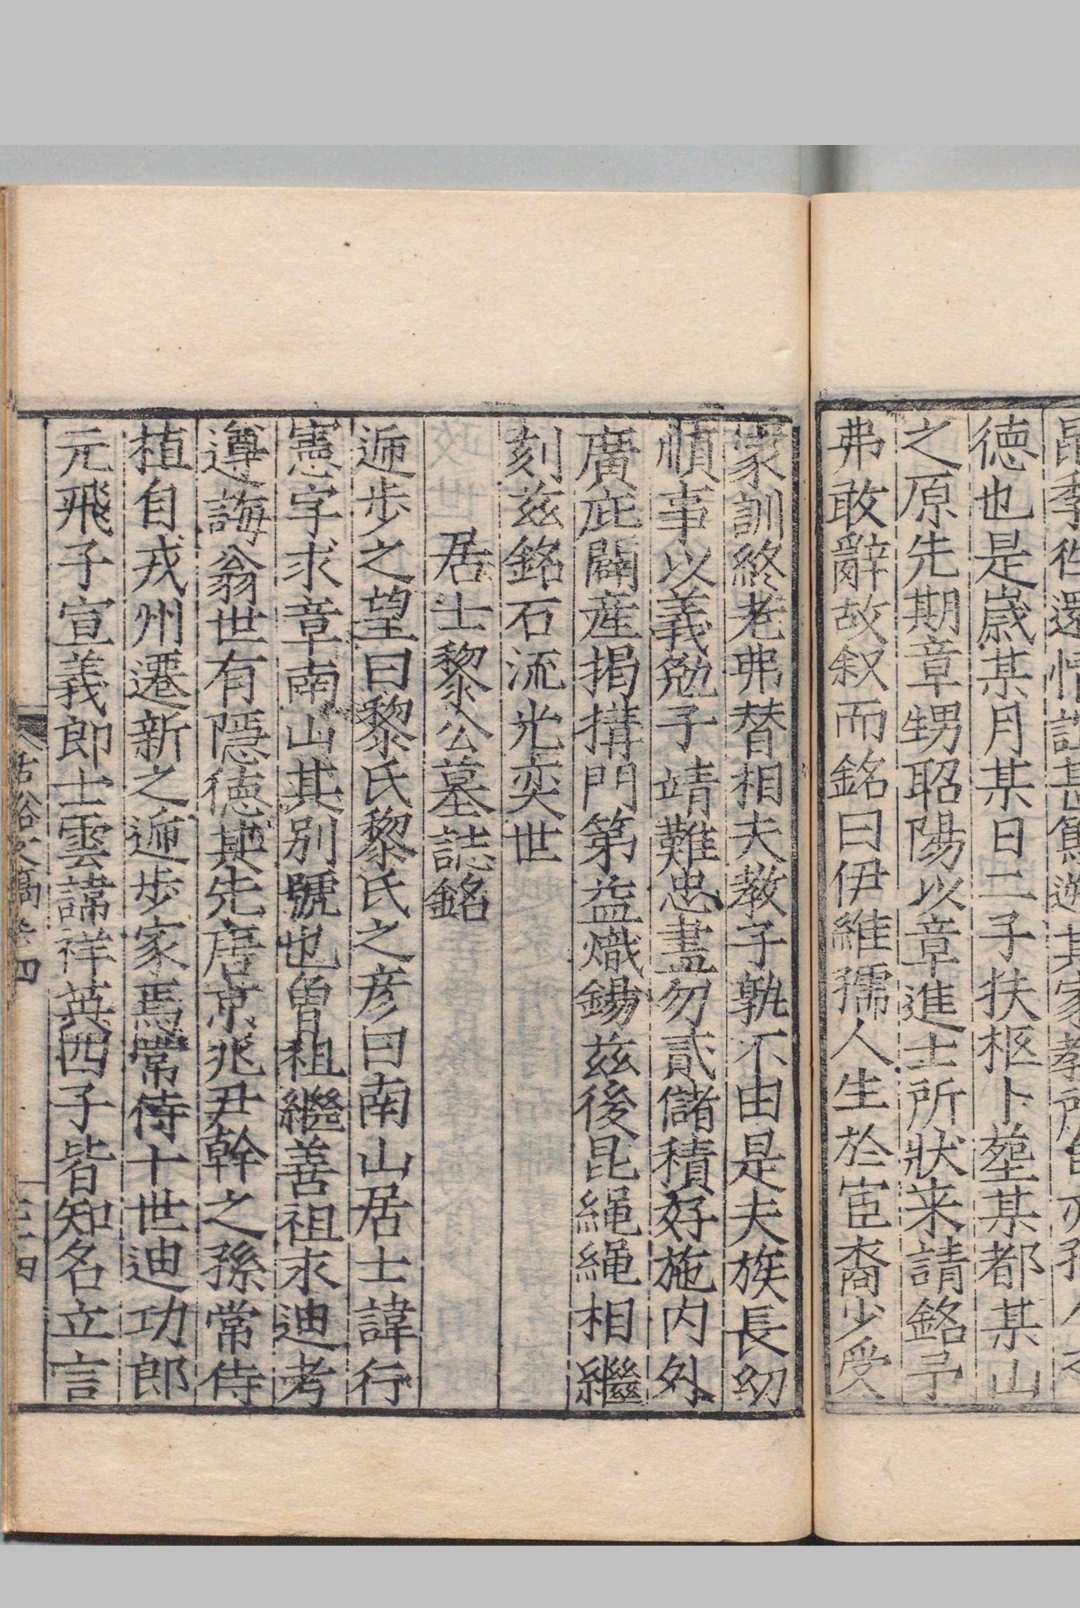 德也是歲某月某日二子扶柩卜塟某都某山
之原先期章甥昭陽以章進士所狀来請銘予
弗敢辭故叙而銘曰伊維孺人生於宦裔少受
家訓終老弗替相夫教子孰不由是夫族長幼
順事以義勉子靖難忠盡勿貳儲積好施内外
廣庇闢産揭搆門第益熾錫茲後昆繩繩相繼
刻茲銘石流光奕世
居士黎公墓誌銘
逓步之望曰黎氏黎氏之彦曰南山居士諱行
憲字求章南山其别號也曽祖繼善祖求迪考
遵誨翁世有隱德其先唐京兆尹幹之孫常侍
植自戎州遷新之逓步家焉常侍十世迪功郎
元飛子宣義郎士雲諱祥英四子皆知名立言
文稿卷四